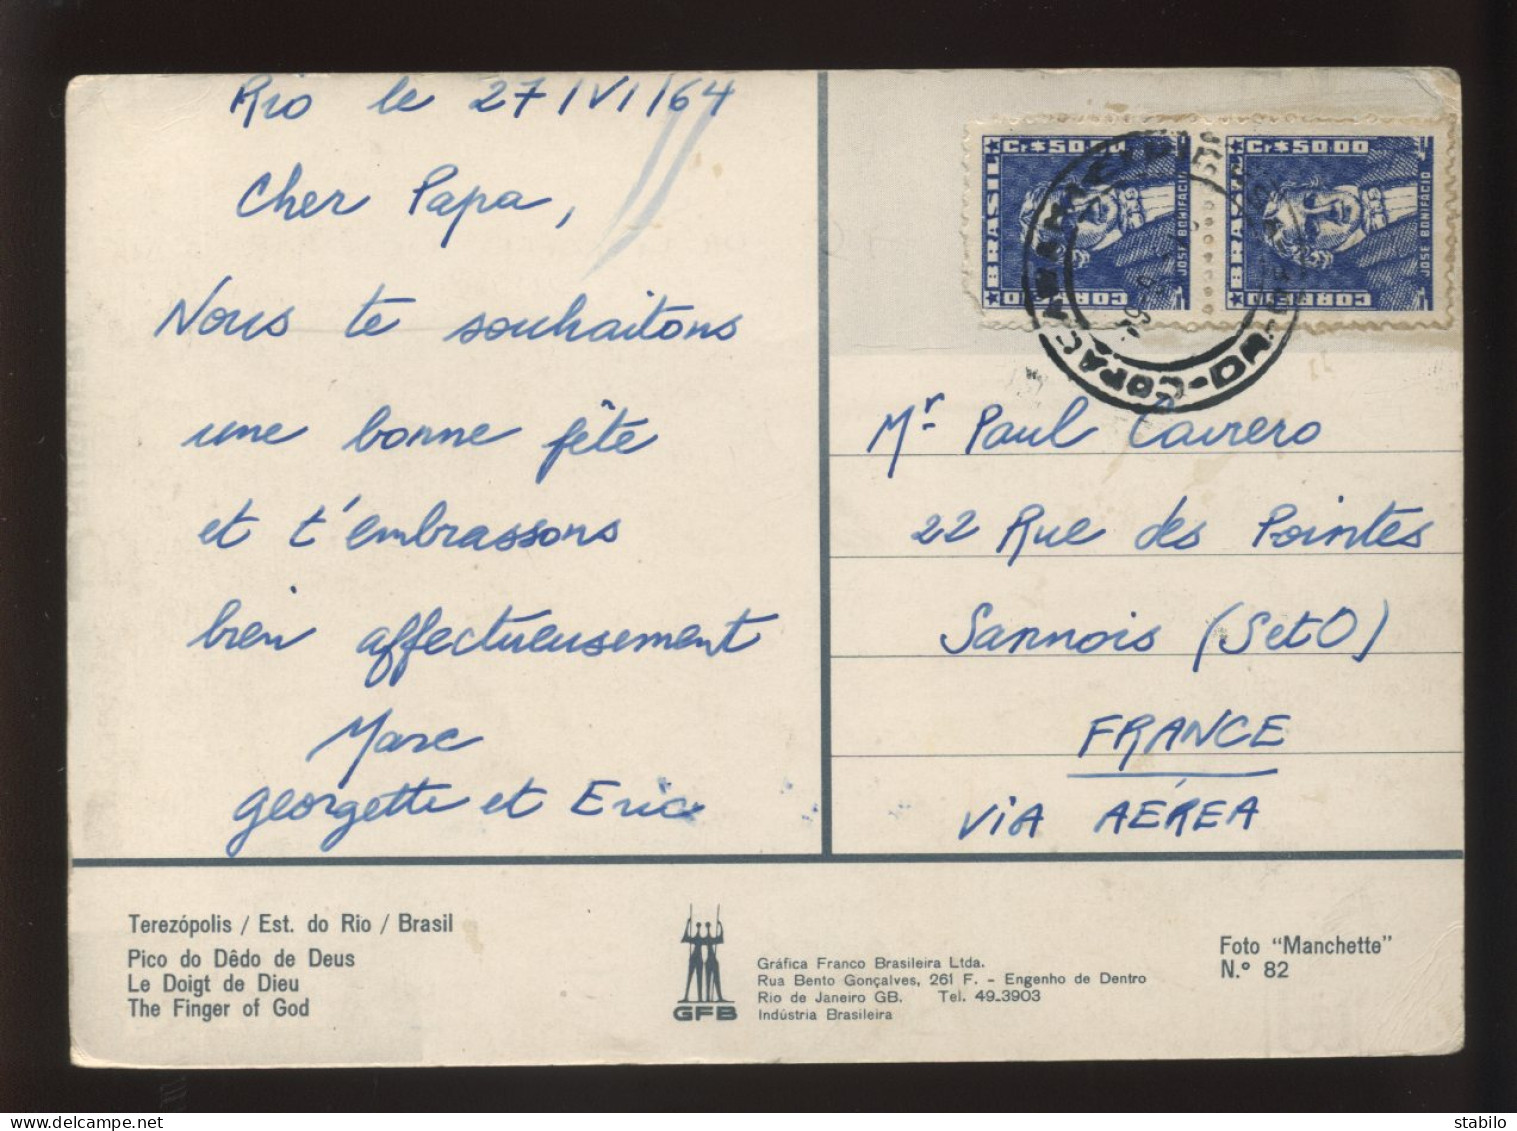 Rio le 27/VI/64
Cher Papa,
Nous te souhaitons
une bonne fête
et t'embrassons
bien affectueusement
Marc
georgette et Eric
Cr$50.00
BRASIL
CORREIO
JOSÉ BONIFÁCIO
Cr$50.00
BRASIL
CORREIO
JOSÉ BONIFÁCIO
COPACABANA
Mr Paul Cavrero
22 Rue des Pointes
Sannois (SetO)
FRANCE
ViA AÉREA
Terezópolis / Est. do Rio / Brasil
Pico do Dêdo de Deus
Le Doigt de Dieu
The Finger of God
GFB
Gráfica Franco Brasileira Ltda.
Rua Bento Gonçalves, 261 F. - Engenho de Dentro
Rio de Janeiro GB. Tel. 49-3903
Indústria Brasileira
Foto "Manchette"
N.º 82
stabilo